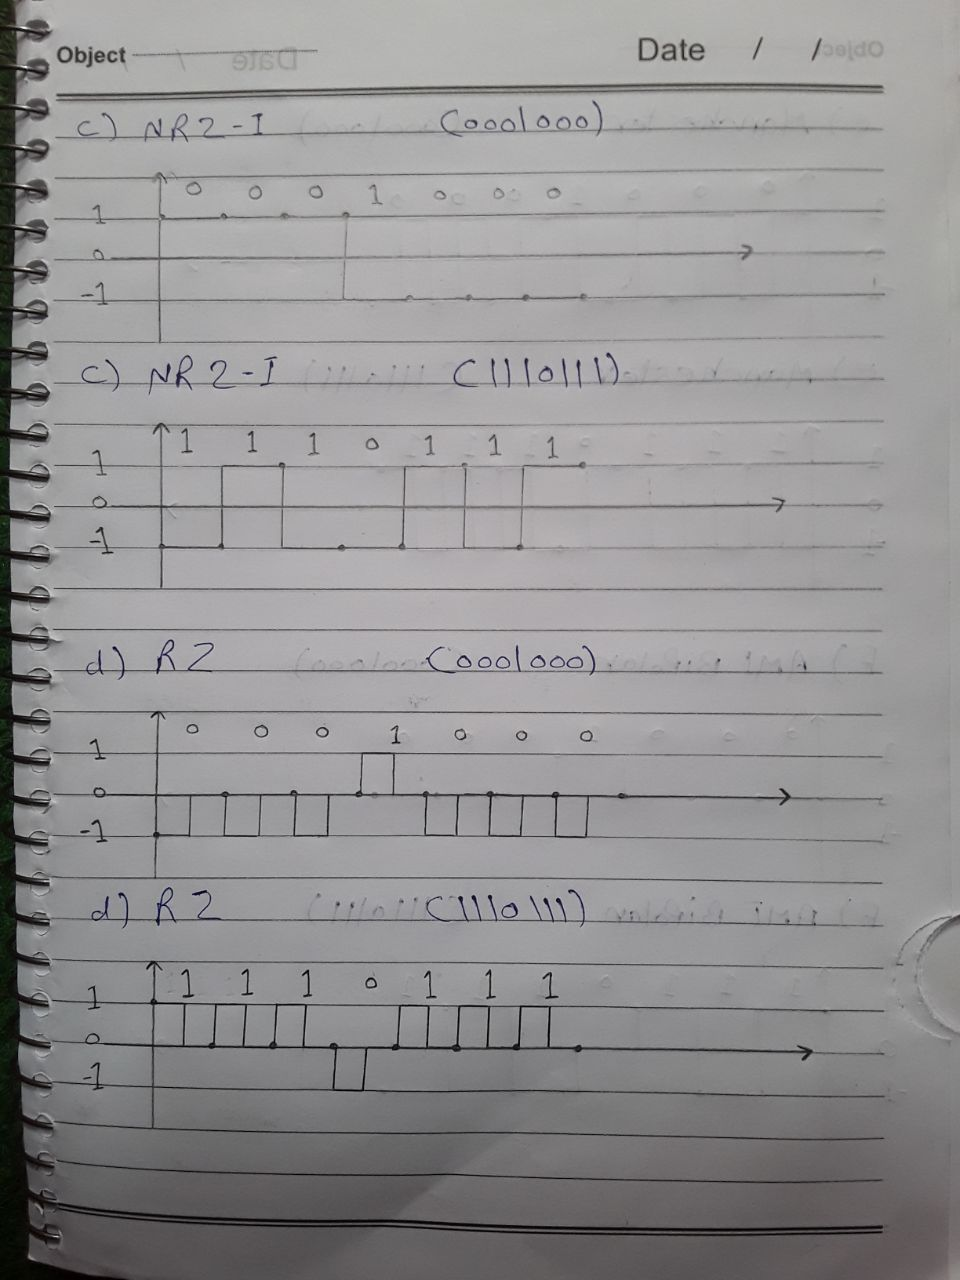 Object
Date / /
c) NRZ-I (0001000)
0 0 0 1 0 0 0
1
0
-1
c) NRZ-I (1110111)
1 1 1 0 1 1 1
1
0
-1
d) RZ (0001000)
0 0 0 1 0 0 0
1
0
-1
d) RZ (1110111)
1 1 1 0 1 1 1
1
0
-1